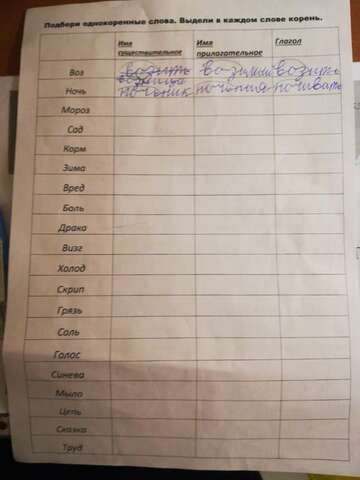 Подбери однокоренные слова. Выдели в каждом слове корень.
Имя существительное Имя прилоготельное Глагол
Воз возить возимый возить
возница
Ночь ночник ночной ночевать
Мороз
Сад
Корм
Зима
Вред
Боль
Драка
Визг
Холод
Скрип
Грязь
Соль
Голос
Синева
Мыло
Цепь
Сказка
Труд